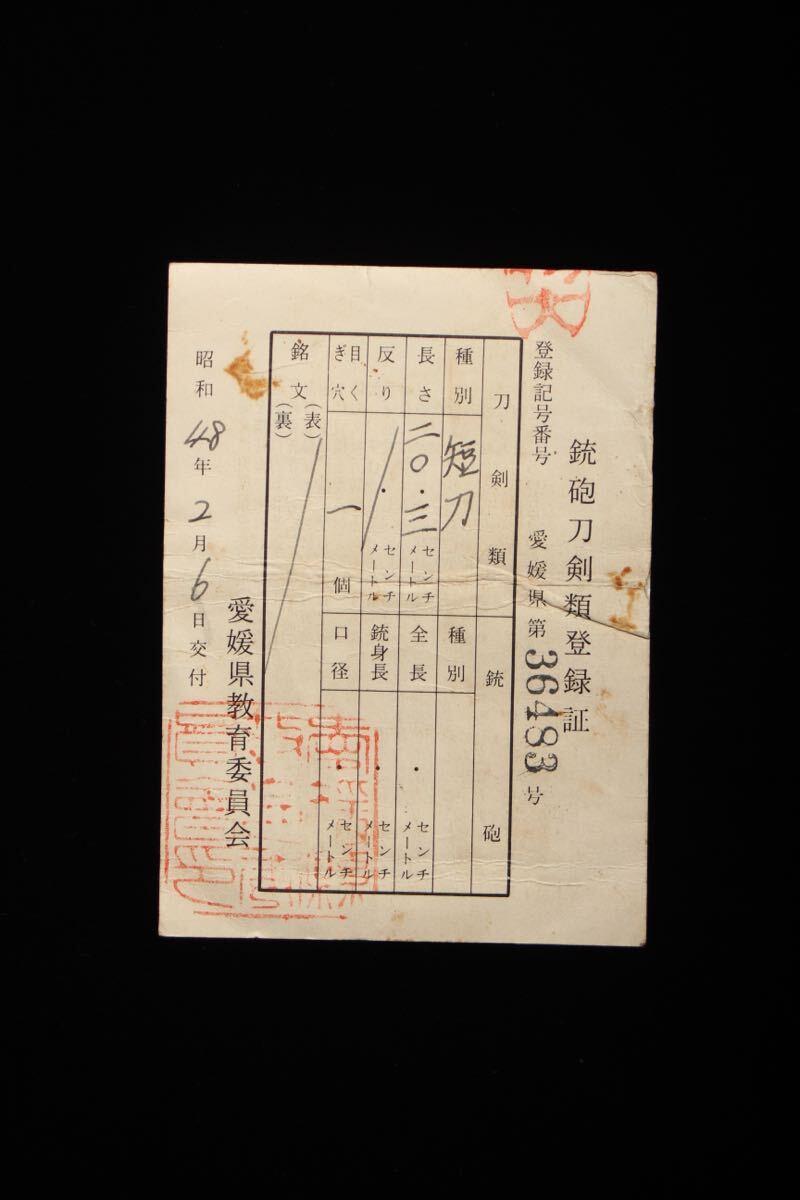 銃砲刀剣類登録証
登録記号番号 愛媛県第36483号
刀剣類
種別 短刀
長さ 二〇.三 センチメートル
反り . センチメートル
目くぎ穴 一 個
銘文 (表)
(裏)
銃砲
種別
全長 . センチメートル
銃身長 . センチメートル
口径 . センチメートル
昭和48年2月6日交付
愛媛県教育委員会